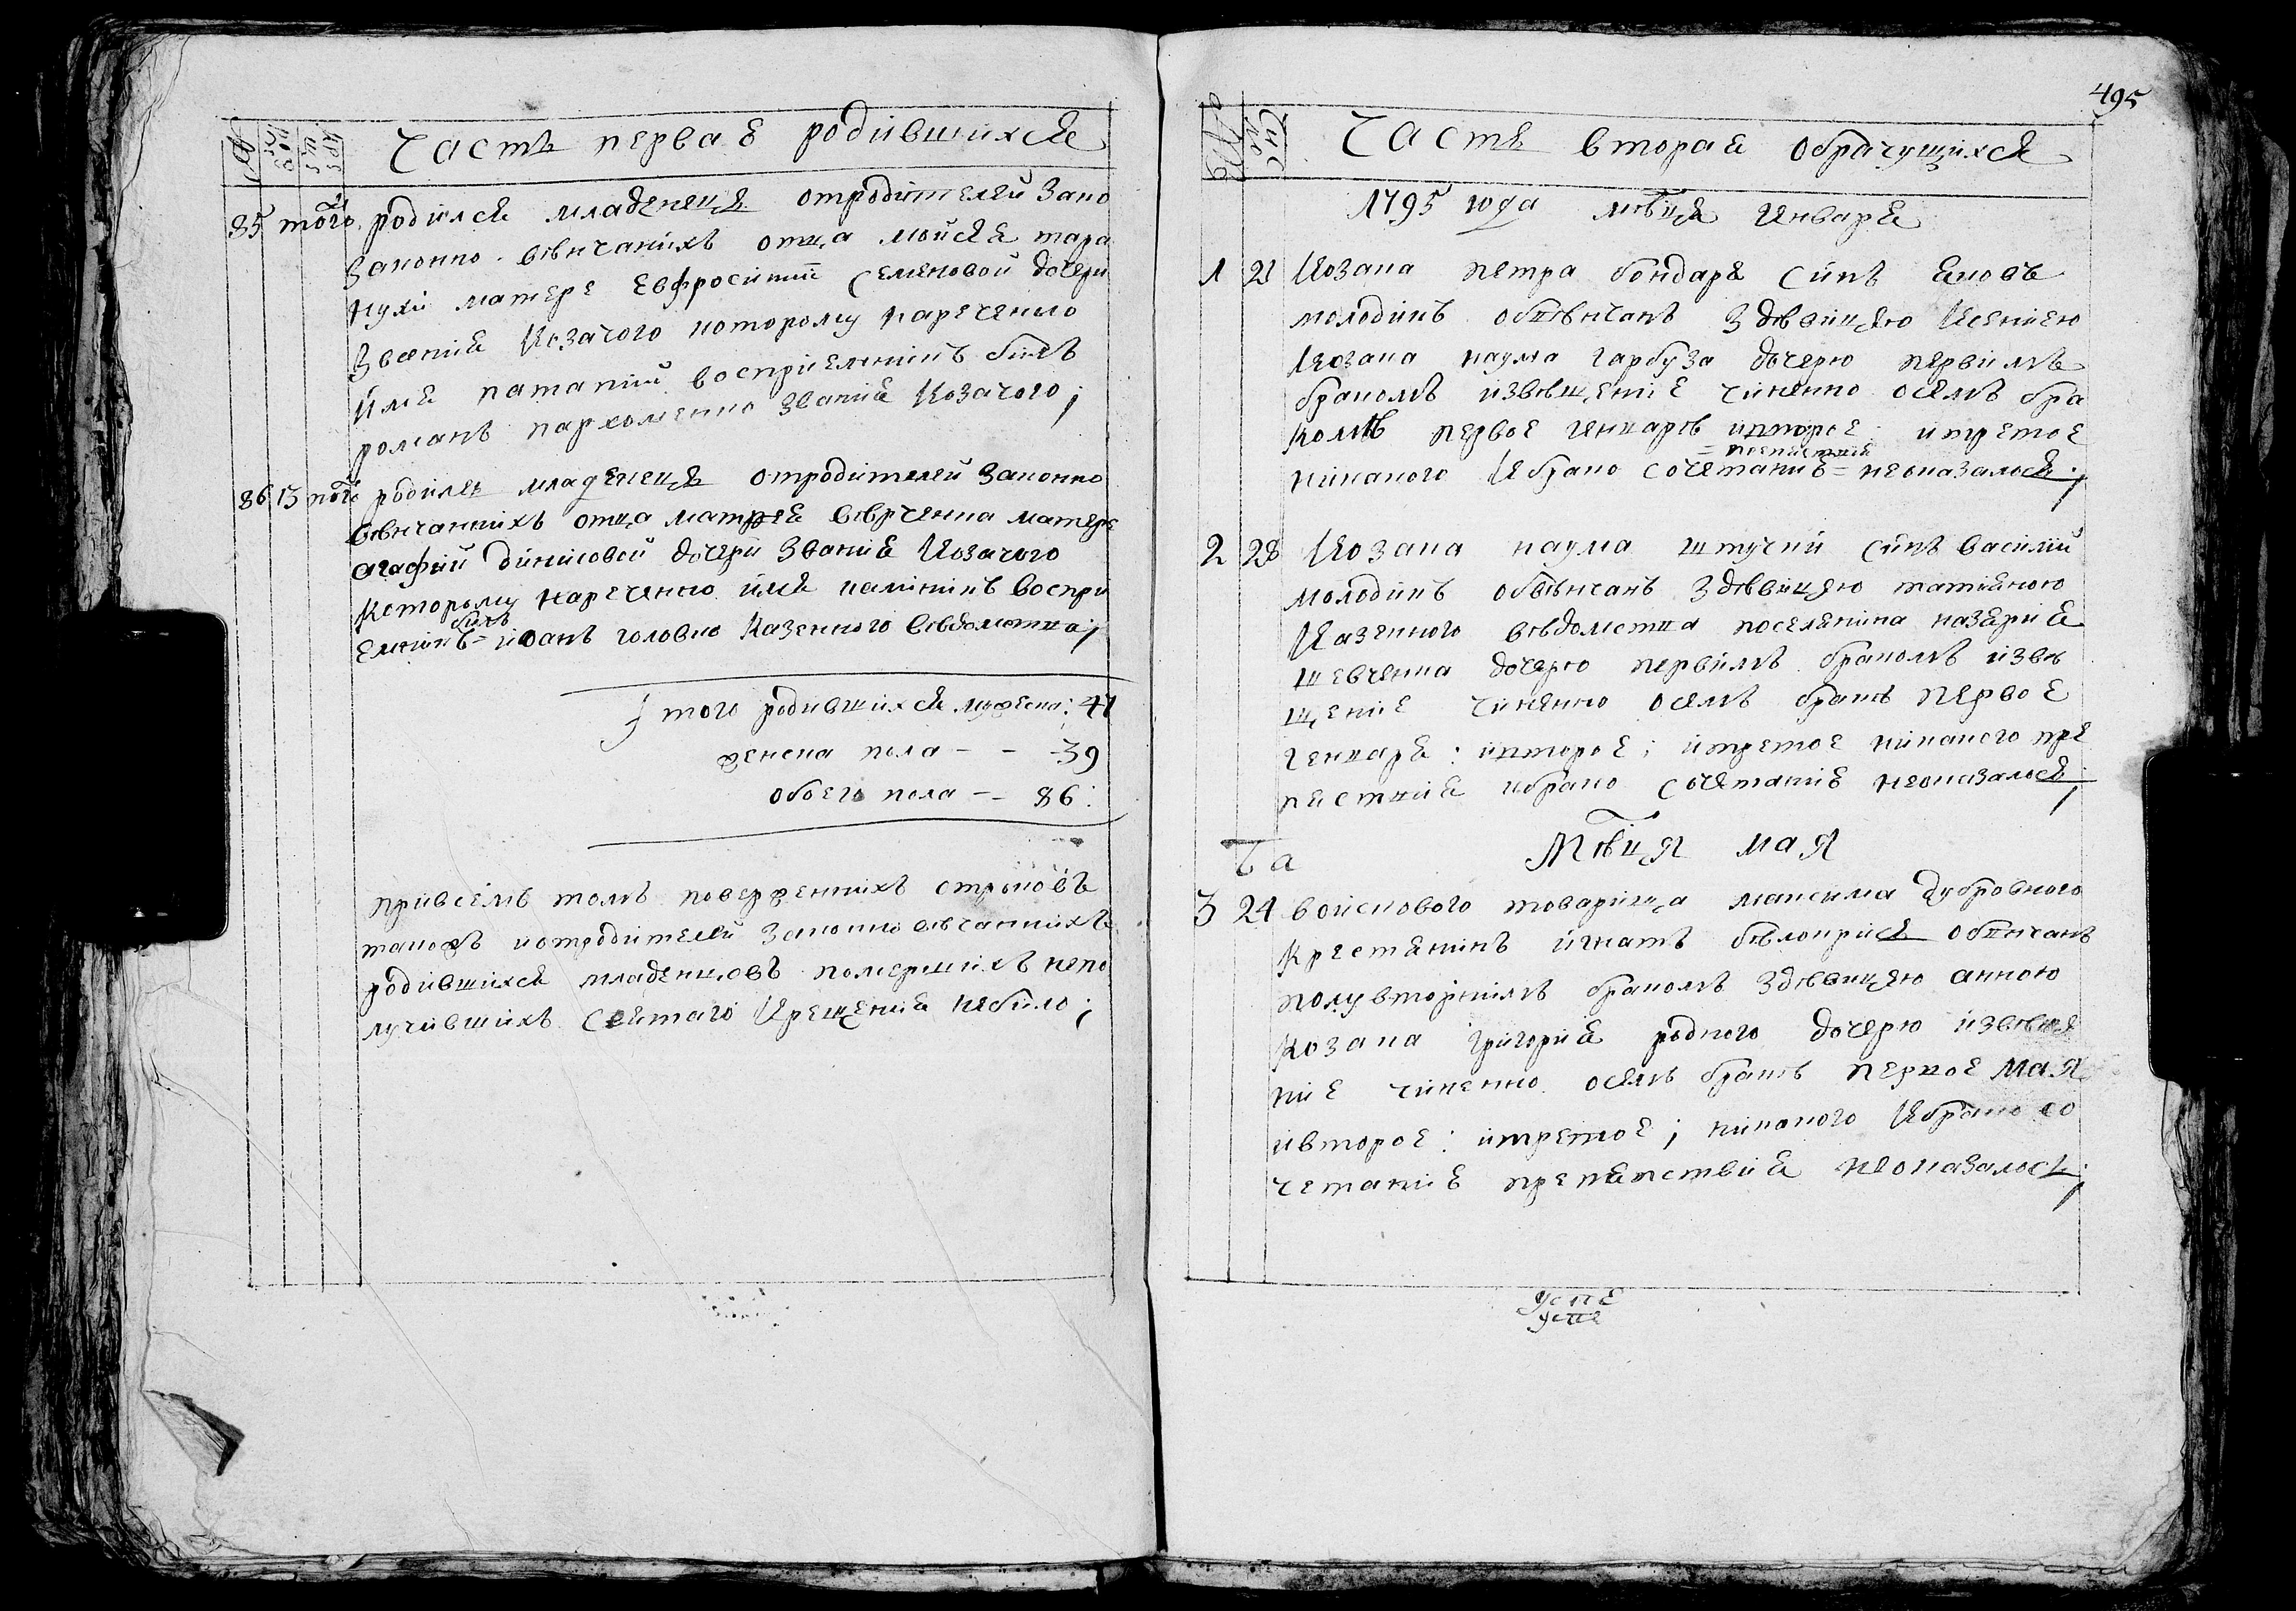 Часть перваѣ родившихся
85 того родился младенецъ отродителей зако
законно вѣнчаніхъ отца мойсѣя тара
нухи матере Евфросинии Семеновой дочери
званія козачого которому наречено
имя патапий восприемникъ билъ
романъ пархоменко званія козачого;
86 13 того родилсь младенецъ отродителей законно
вѣнчанніхъ отца матфея вѣрченка матере
агафий динисовой дочери званія козачого
которому наречено имя калиникъ воспри
билъ
емникъ= иоанъ головко казенного вѣдомства;
Ітого родившихся мужеска: 47
женска пола - - -39
обоего пола - - 86:
привсемъ томъ поверженнихъ
такожъ иотродителей законно вѣчаннихъ
родившихся младенцовъ помершихъ непо
лучившихъ святаго крещенія небило;
495
Число
Часть вторая обрачущихся
1795 года мѣця генваря
1 21 козака петра бондаря синъ яковъ
молодикъ обвѣнчанъ здѣвицею ксениею
козака наума гарбуза дочерю первимъ
бракомъ извѣщение чиненно осемъ бра
комъ первое генваря ивторое: итретое
никакого кбрако сочетанию= неоказалося;
2 28 козака наума штучий синъ василий
молодикъ обвѣнчанъ здѣвицею татияною
казенного вѣдомства поселянина назария
шевченка дочерю первимъ бракомъ извѣ
щение чиненно осемъ бракъ первое
генваря: ивторое: итретое никакого пре
пяствия кбрако сочетанию неоказалося;
Мѣця мая
3 24 войскового товарища максима дубровного
крестянинъ игнатъ бѣлокриса обвѣнчанъ
полувторнимъ бракомъ здѣвицею анною
козака григория родного дочерю извѣще
ние чиненно осемъ бракъ первое мая
ивторое: итретое; никакого кбрако со
четанию препяпствия неоказалось;